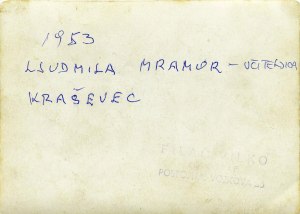 1953
LJUDMILA MRAMOR – UČITELJICA
KRAŠEVEC